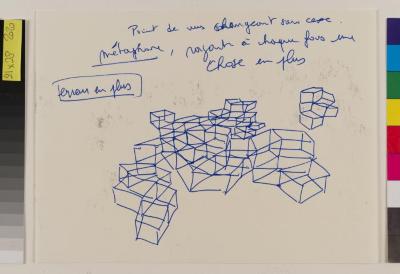 Point de vue changeant sans cesse.
métaphore, rajoute à chaque fois une
chose en plus
terrain en plus